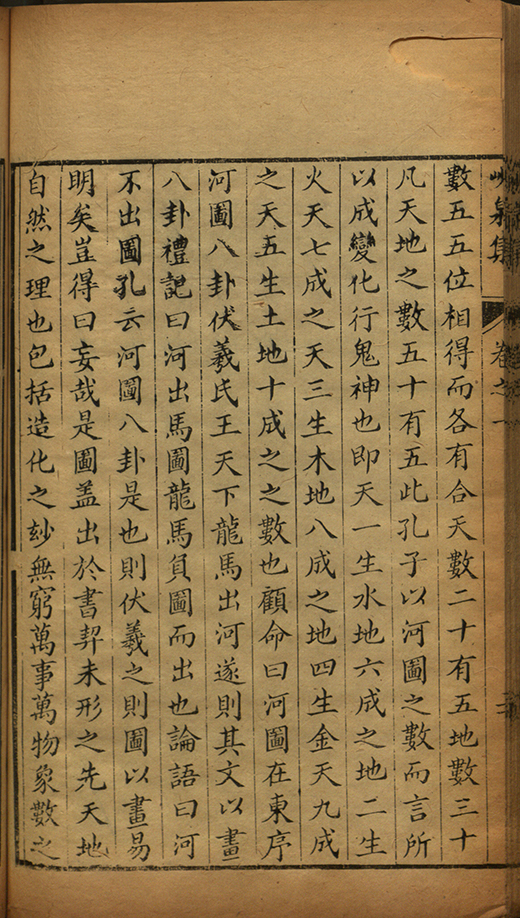 泉集 卷之一
數五五位相得而各有合天數二十有五地數三十
凡天地之數五十有五此孔子以河圖之數而言所
以成變化行鬼神也即天一生水地六成之地二生
火天七成之天三生木地八成之地四生金天九成
之天五生土地十成之之數也顧命曰河圖在東序
河圖八卦伏羲氏王天下龍馬出河遂則其文以畫
八卦禮記曰河出馬圖龍馬負圖而出也論語曰河
不出圖孔云河圖八卦是也則伏羲之則圖以畫易
明矣豈得曰妄哉是圖盖出於書契未形之先天地
自然之理也包括造化之玅無窮萬事萬物象數之